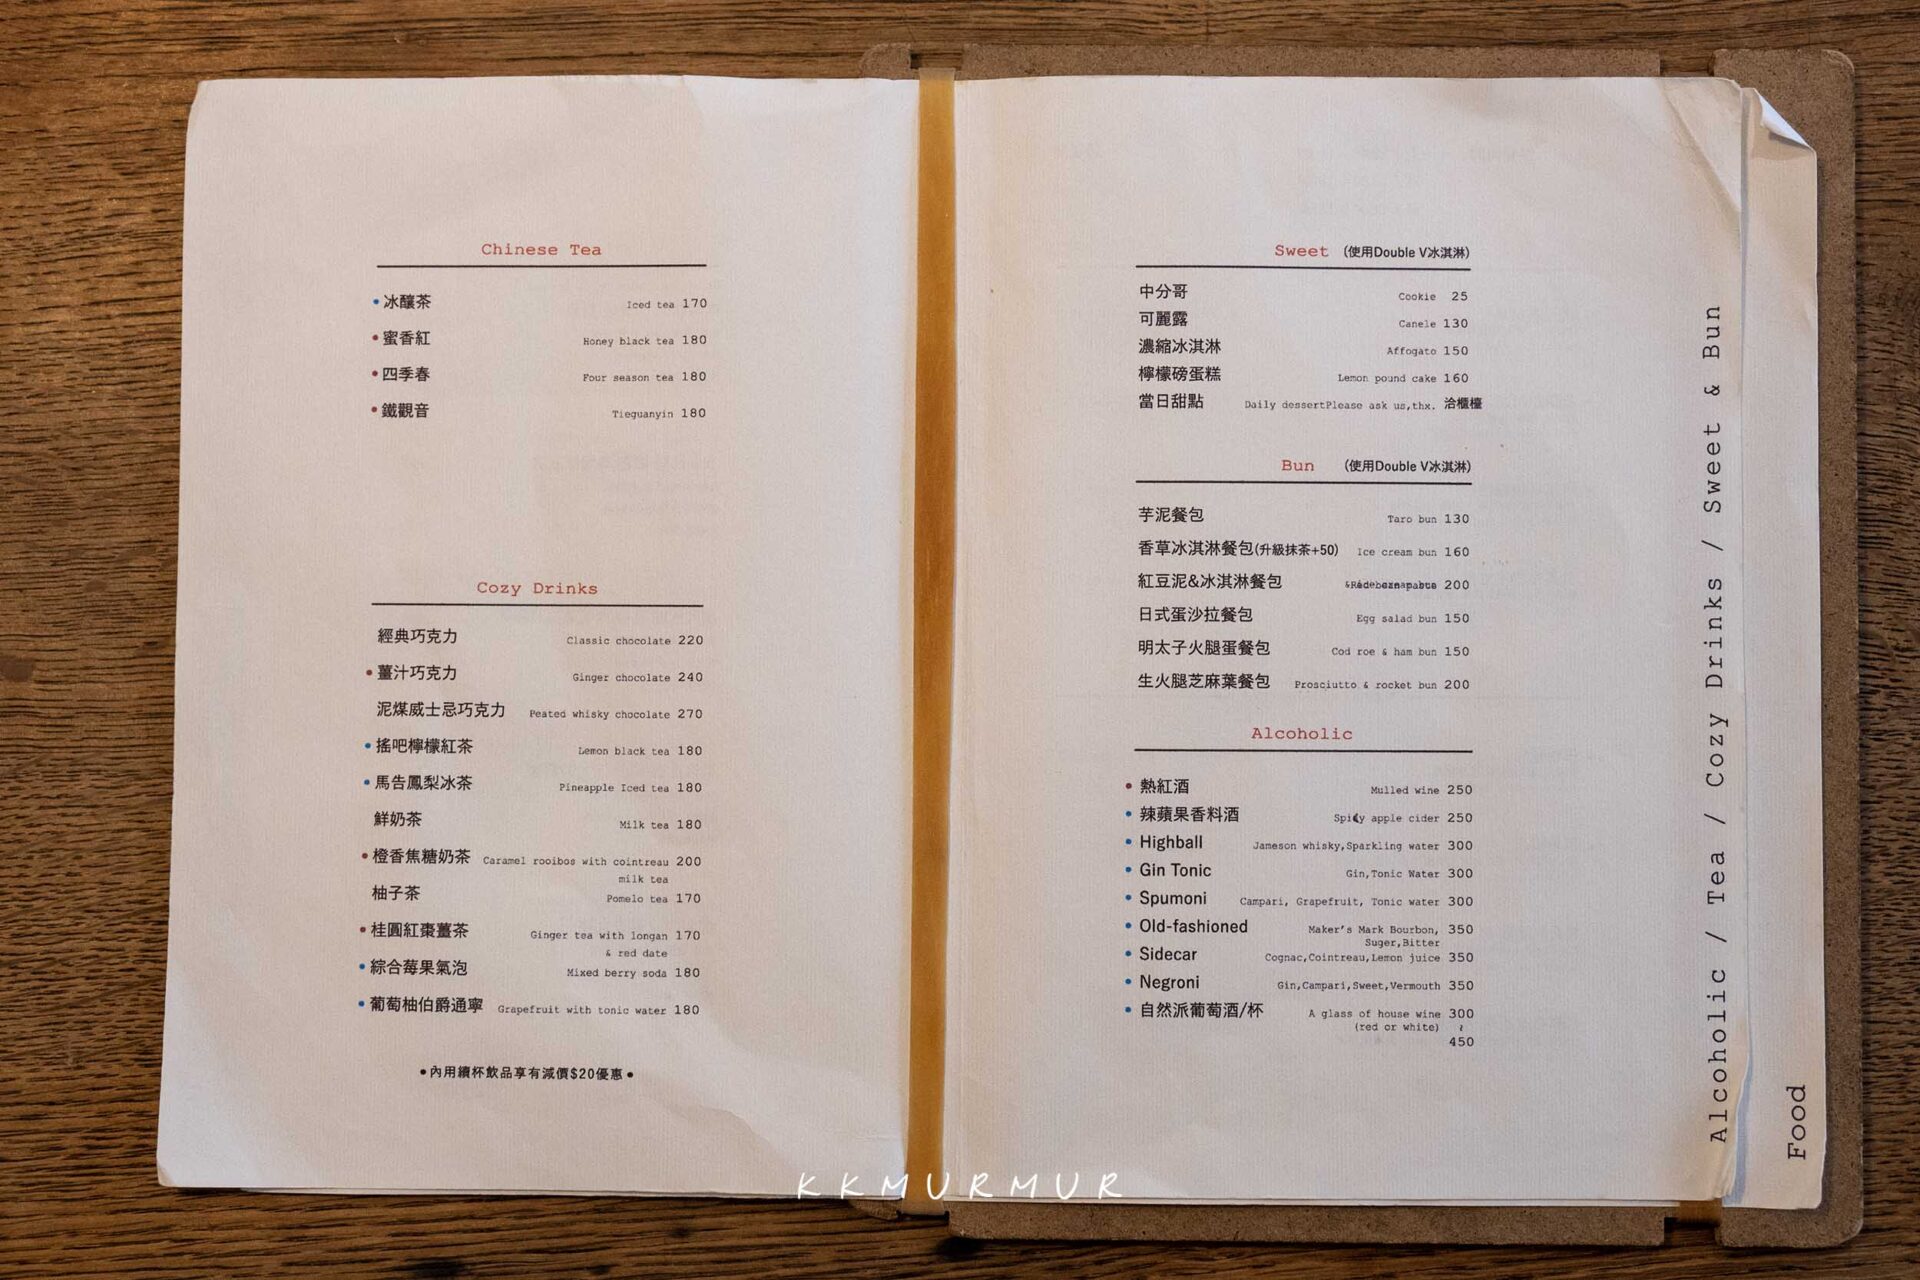 Chinese Tea
• 冰釀茶 Iced tea 170
• 蜜香紅 Honey black tea 180
• 四季春 Four season tea 180
• 鐵觀音 Tieguanyin 180
Cozy Drinks
經典巧克力 Classic chocolate 220
• 薑汁巧克力 Ginger chocolate 240
泥煤威士忌巧克力 Peated whisky chocolate 270
• 搖吧檸檬紅茶 Lemon black tea 180
• 馬告鳳梨冰茶 Pineapple Iced tea 180
鮮奶茶 Milk tea 180
• 橙香焦糖奶茶 Caramel rooibos with cointreau 200
milk tea
柚子茶 Pomelo tea 170
• 桂圓紅棗薑茶 Ginger tea with longan 170
& red date
• 綜合莓果氣泡 Mixed berry soda 180
• 葡萄柚伯爵通寧 Grapefruit with tonic water 180
•內用續杯飲品享有減價$20優惠•
Sweet (使用Double V冰淇淋)
中分哥 Cookie 25
可麗露 Canele 130
濃縮冰淇淋 Affogato 150
檸檬磅蛋糕 Lemon pound cake 160
當日甜點 Daily dessertPlease ask us,thx. 洽櫃檯
Bun (使用Double V冰淇淋)
芋泥餐包 Taro bun 130
香草冰淇淋餐包(升級抹茶+50) Ice cream bun 160
紅豆泥&冰淇淋餐包 200
日式蛋沙拉餐包 Egg salad bun 150
明太子火腿蛋餐包 Cod roe & ham bun 150
生火腿芝麻葉餐包 Prosciutto & rocket bun 200
Alcoholic
• 熱紅酒 Mulled wine 250
• 辣蘋果香料酒 Spicy apple cider 250
• Highball Jameson whisky,Sparkling water 300
• Gin Tonic Gin,Tonic Water 300
• Spumoni Campari, Grapefruit, Tonic water 300
• Old-fashioned Maker's Mark Bourbon, 350
Suger,Bitter
• Sidecar Cognac,Cointreau,Lemon juice 350
• Negroni Gin,Campari,Sweet,Vermouth 350
• 自然派葡萄酒/杯 A glass of house wine 300
(red or white) ~
450
Alcoholic / Tea / Cozy Drinks / Sweet & Bun
Food
KKMURMUR